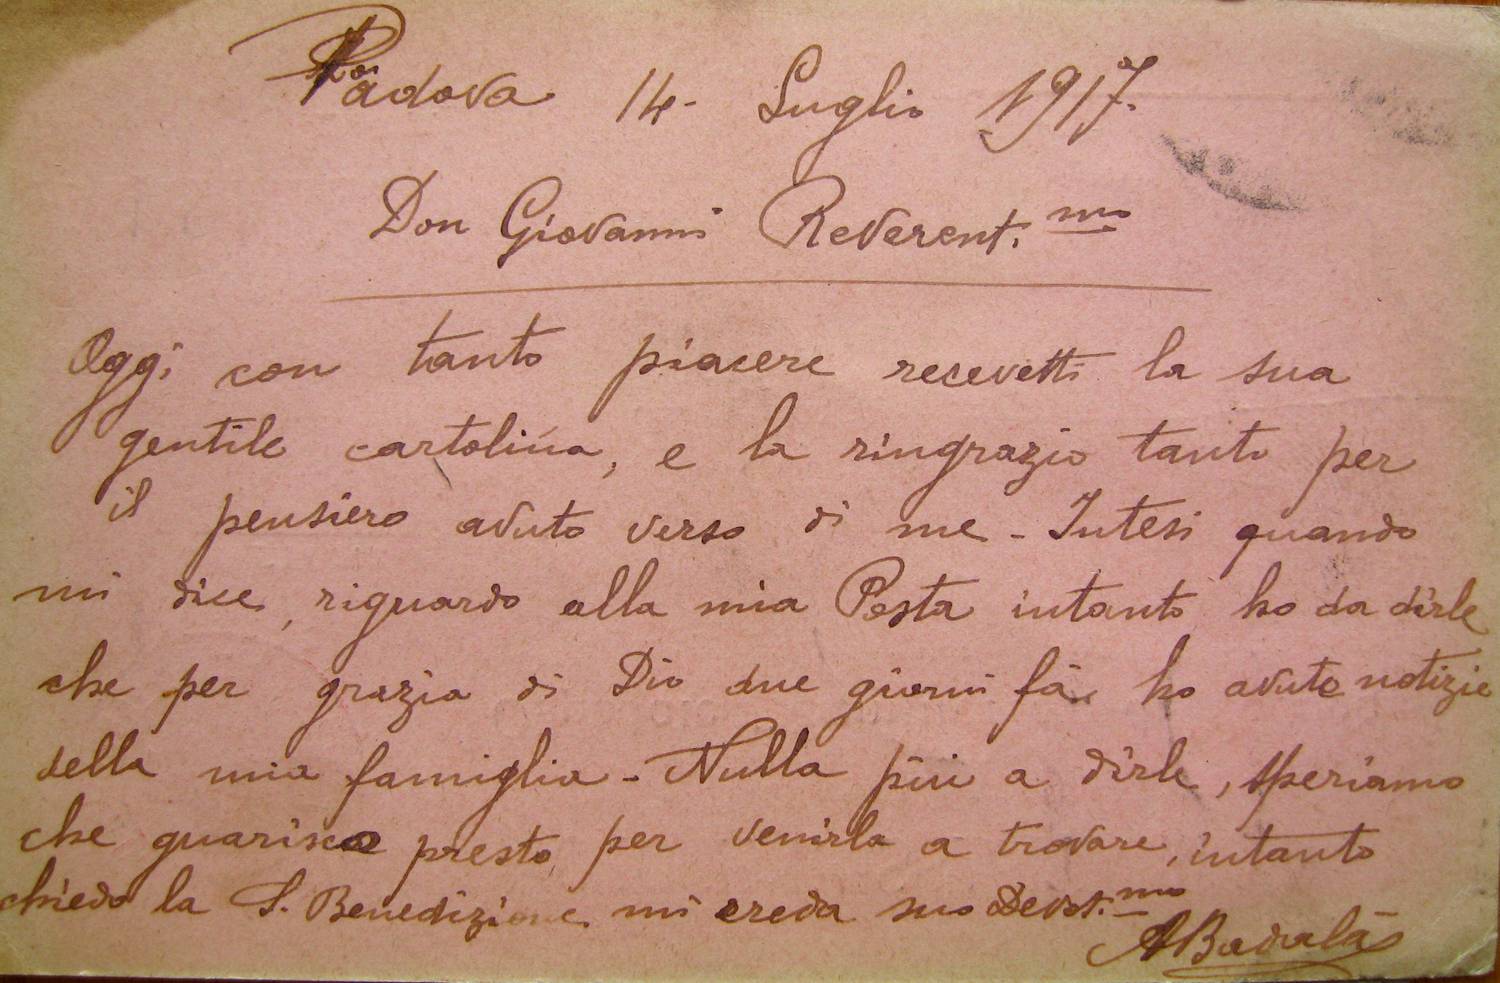 Padova 14- Luglio 1917.
Don Giovanni Reverent.mo
Oggi con tanto piacere recevetti la sua
gentile cartolina, e la ringrazio tanto per
il pensiero avuto verso di me - Intesi quando
mi dice, riguardo alla mia Posta intanto ho da dirle
che per grazia di Dio due giorni fà ho avuto notizie
della mia famiglia - Nulla più a dirle, speriamo
che guarisca presto per venirla a trovare, intanto
chiedo la S. Benedizione mi creda suo Devot.mo
ABadalà